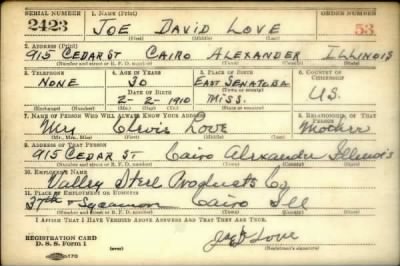 SERIAL NUMBER 1. NAME (Print) ORDER NUMBER
2423 JOE DAVID LOVE 53
(First) (Middle) (Last)
2. ADDRESS (Print)
915 CEDAR ST CAIRO ALEXANDER ILLINOIS
(Number and street or R. F. D. number) (Town) (County) (State)
3. TELEPHONE 4. AGE IN YEARS 5. PLACE OF BIRTH 6. COUNTRY OF CITIZENSHIP
NONE 30 EAST SENATOBA
DATE OF BIRTH (Town or county)
2-2-1910 MISS. U.S.
(Exchange) (Number) (Mo.) (Day) (Yr.) (State or country)
7. NAME OF PERSON WHO WILL ALWAYS KNOW YOUR ADDRESS 8. RELATIONSHIP OF THAT PERSON
Love Mother
(Mr., Mrs., Miss) (First) (Middle) (Last)
9. ADDRESS OF THAT PERSON
915 CEDAR ST Cairo Alexander Illinois
(Number and street or R. F. D. number) (Town) (County) (State)
10. EMPLOYER'S NAME
Valley Steel Products Co
11. PLACE OF EMPLOYMENT OR BUSINESS
37th & Sycamore Cairo Ill
(Number and street or R. F. D. number) (Town) (County) (State)
I AFFIRM THAT I HAVE VERIFIED ABOVE ANSWERS AND THAT THEY ARE TRUE.
REGISTRATION CARD
D. S. S. Form 1 Love
(Registrant's signature)